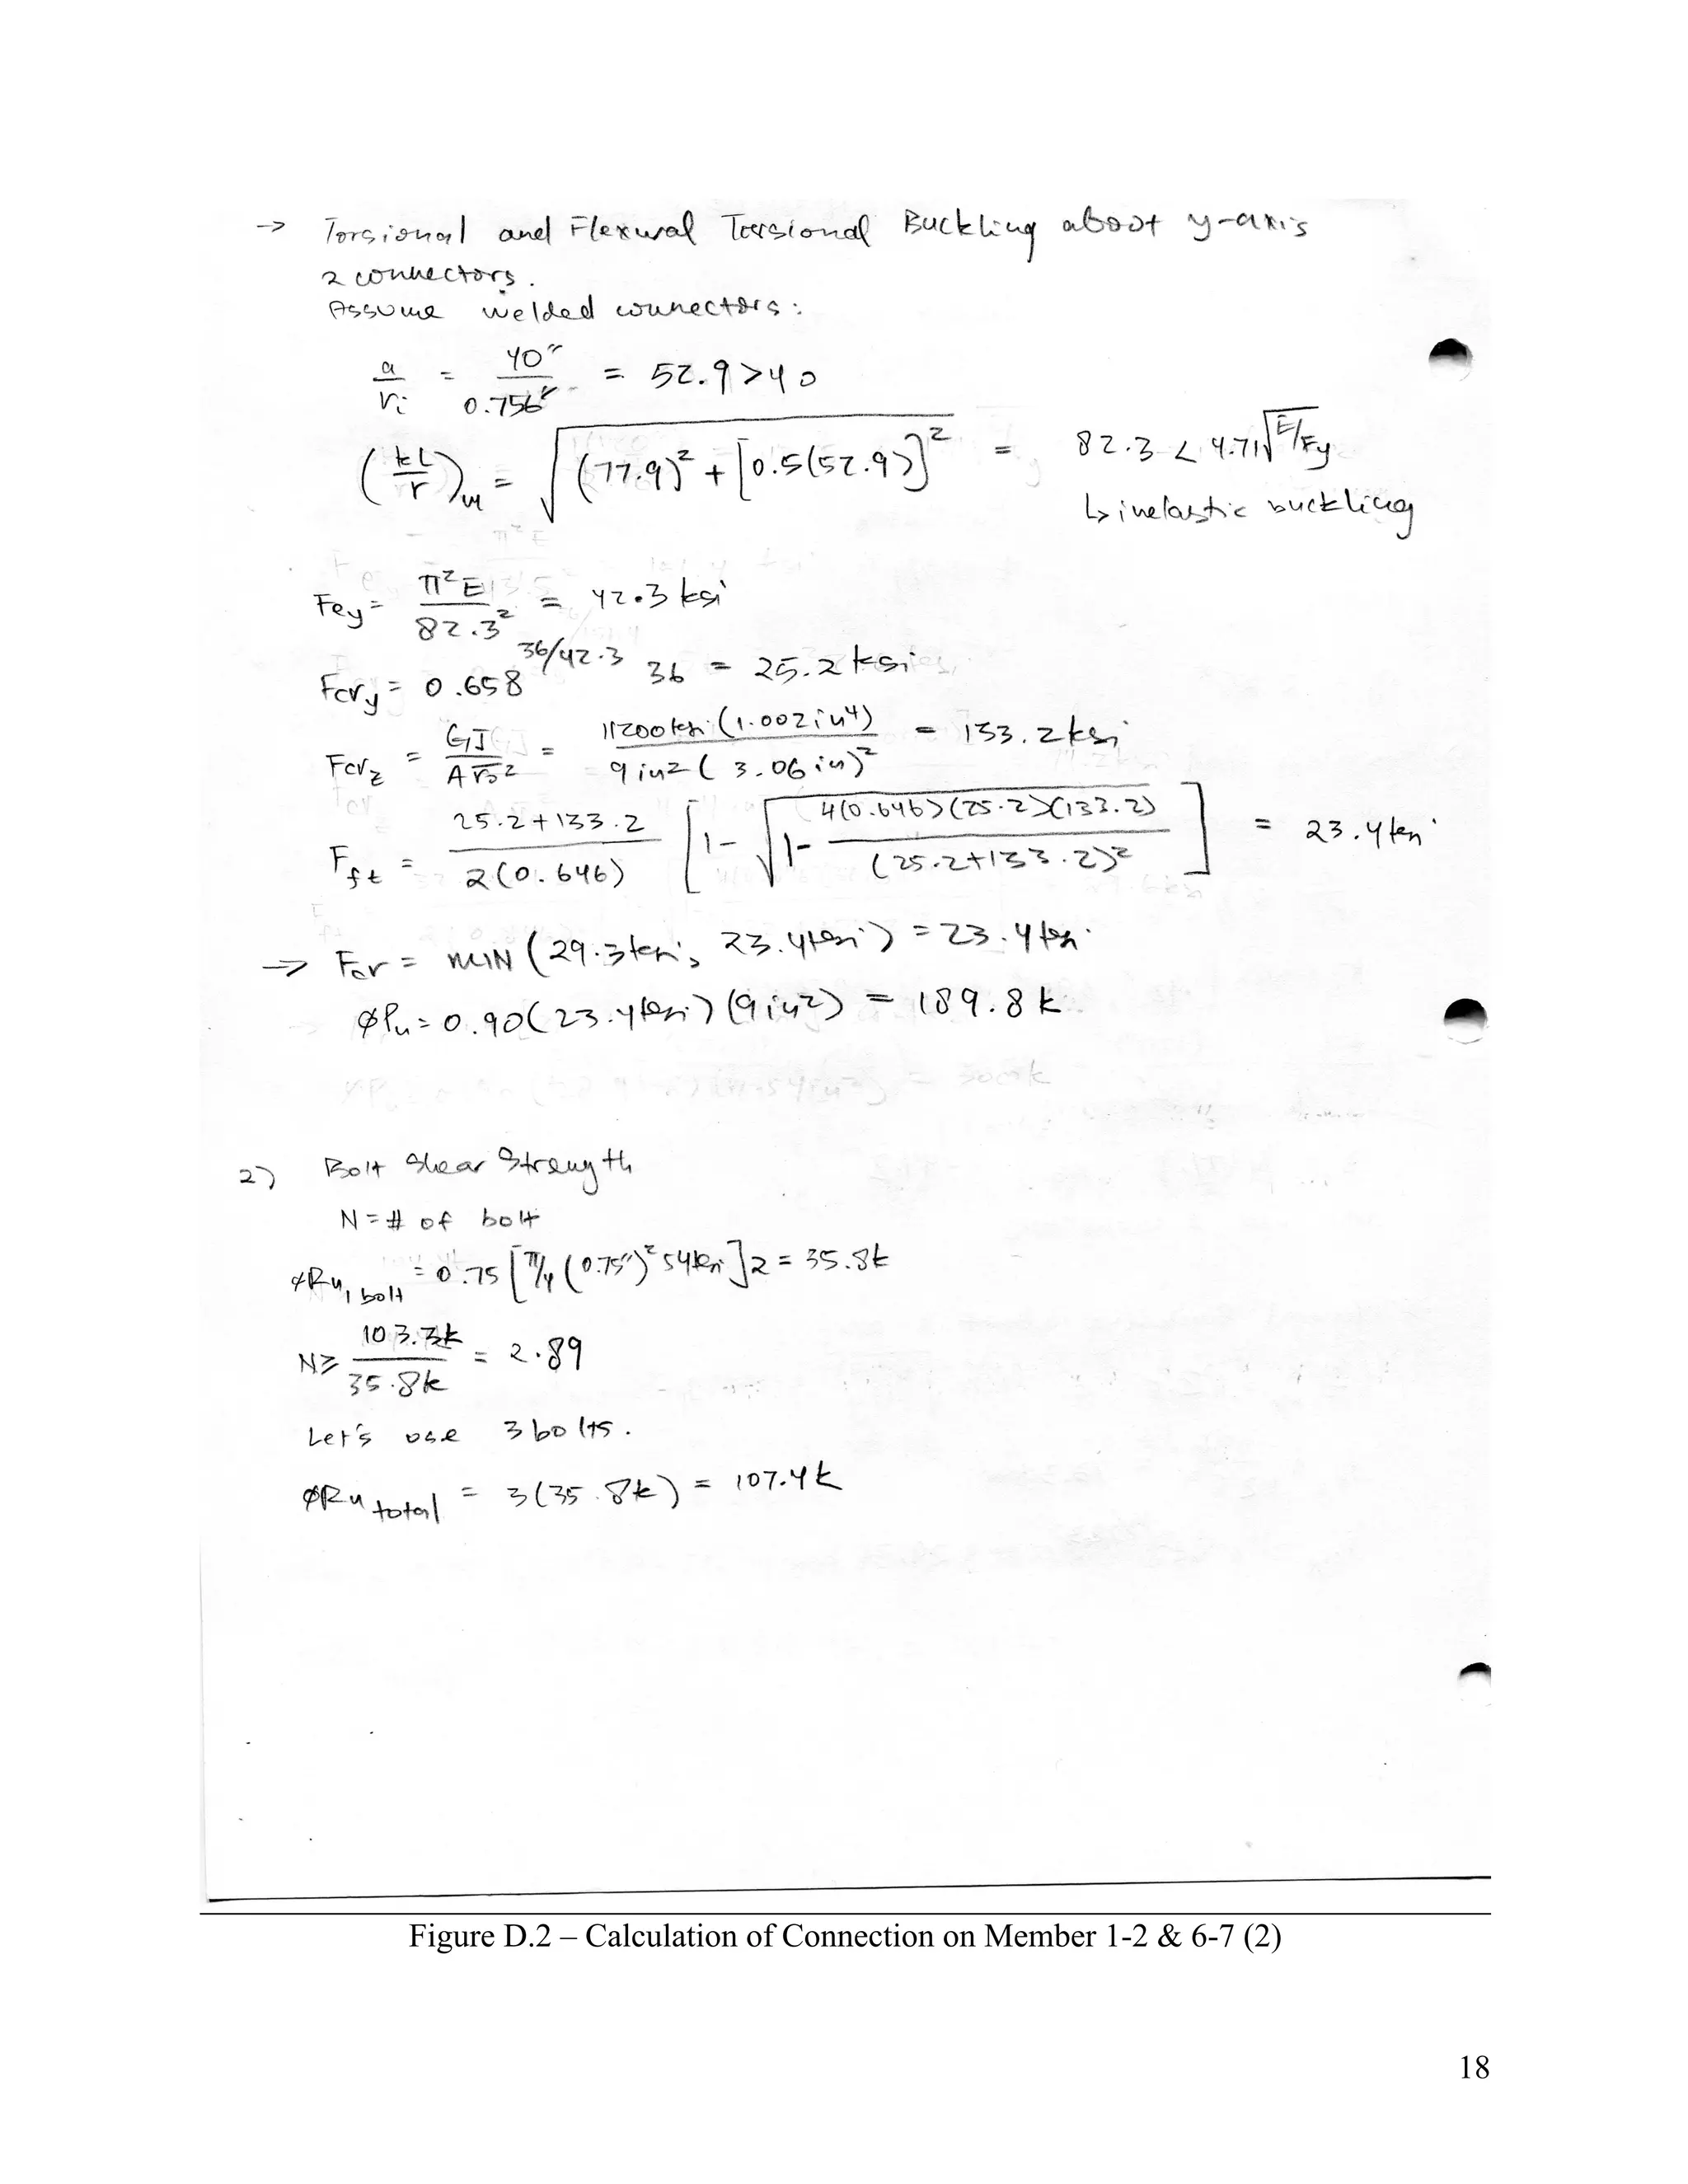 → Torsional and Flexural Torsional Buckling about y-axis
2 connectors.
Assume welded connectors:
a/ri = 40"/0.756" = 52.9 > 40
(kL/r)m = √((77.9)² + [0.5(52.9)]²) = 82.3 < 4.71√(E/Fy)
↳ inelastic buckling
Fey = π²E/82.3² = 42.3 ksi
Fcry = 0.658^(36/42.3) 36 = 25.2 ksi
Fcrz = GJ/(A r̄o²) = 11200 ksi (1.002 in⁴)/(9 in² (3.06 in)²) = 133.2 ksi
Fft = (25.2+133.2)/(2(0.646)) [1-√(1-(4(0.646)(25.2)(133.2))/((25.2+133.2)²))] = 23.4 ksi
→ Fcr = MIN (29.3 ksi, 23.4 ksi) = 23.4 ksi
ØPn = 0.90(23.4 ksi)(9 in²) = 189.8 k
2) Bolt Shear Strength
N = # of bolt
ØRn, 1 bolt = 0.75 [π/4 (0.75")² 54 ksi] 2 = 35.8k
N ≥ 103.3k/35.8k = 2.89
Let's use 3 bolts.
ØRn total = 3(35.8k) = 107.4k
Figure D.2 – Calculation of Connection on Member 1-2 & 6-7 (2)
18